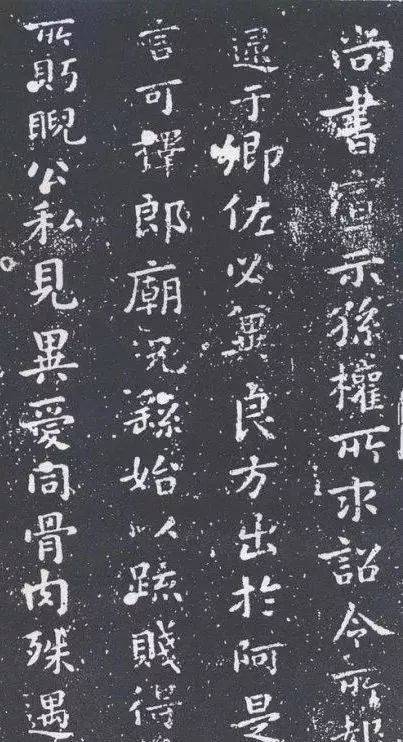 尚書宣示孫權所求詔令所報
逮于卿佐必冀良方出於阿是
言可擇郎廟況繇始以疏賤得
所眤公私見異愛同骨肉殊遇